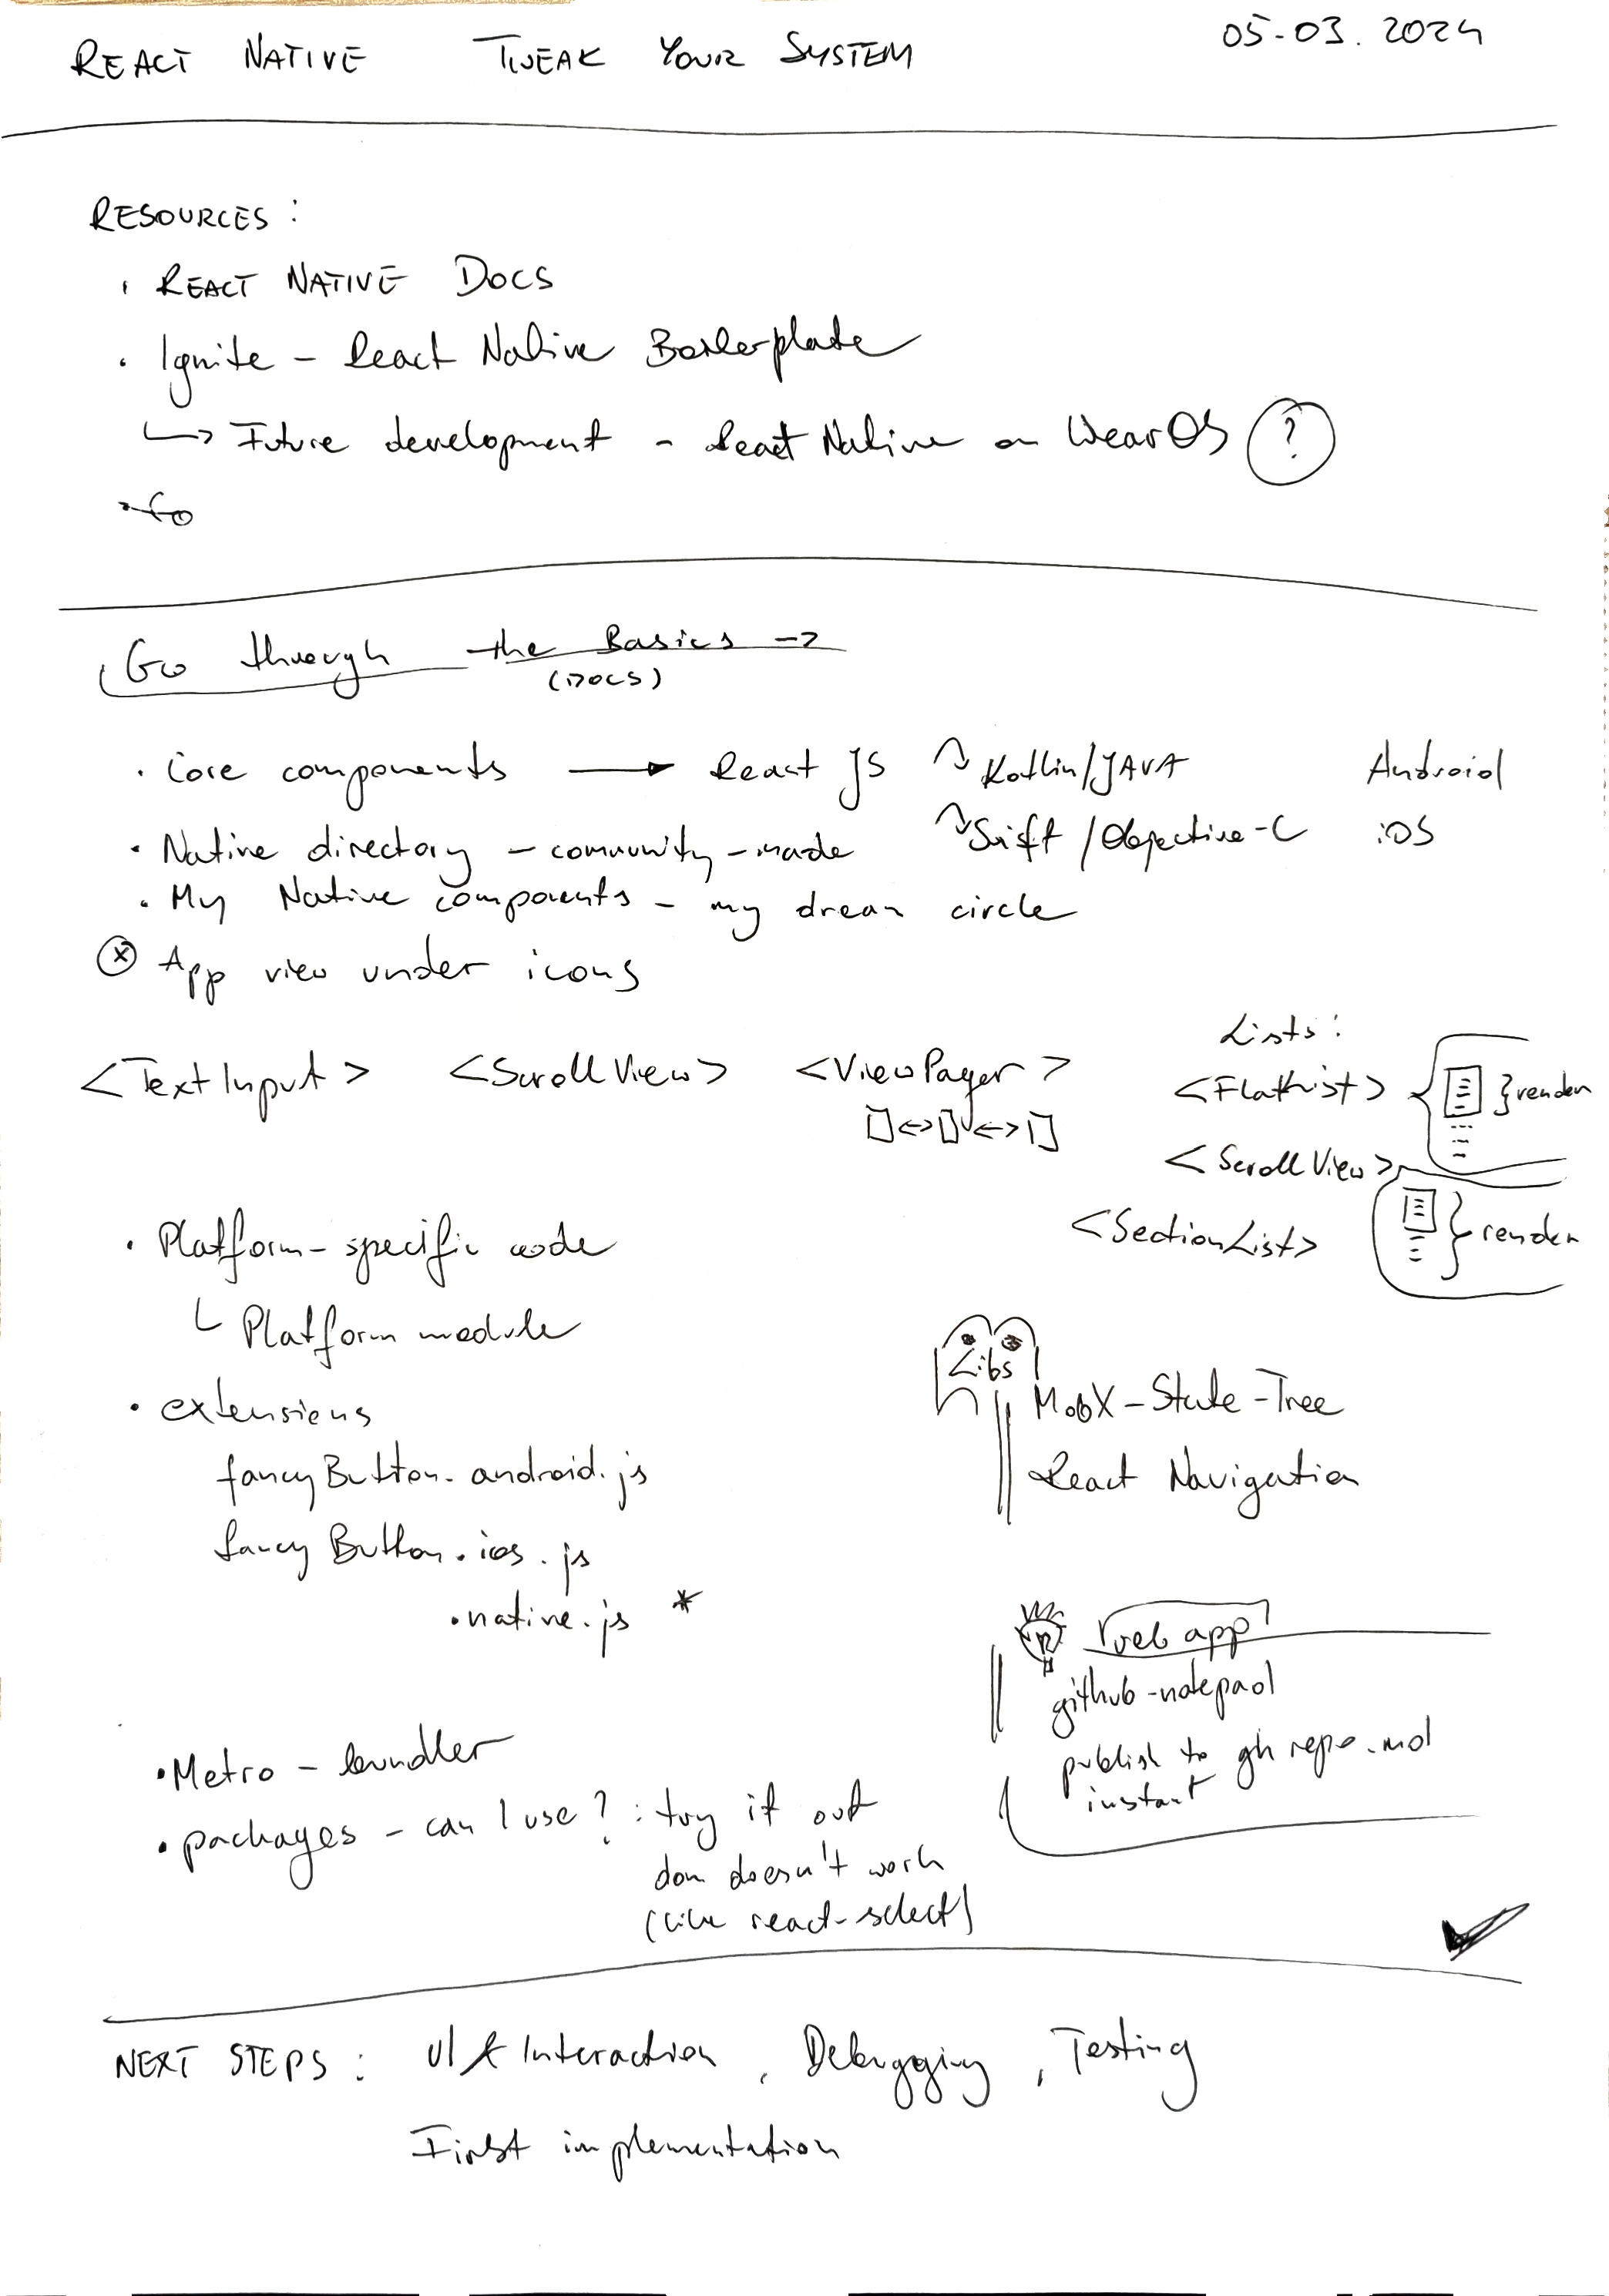 REACT NATIVE TWEAK YOUR SYSTEM 05-03.2024
RESOURCES:
· REACT NATIVE DOCS
· Ignite - React Native Boilerplate
↳ Future development - React Native on WearOS ?
Go through the Basics ->
(DOCS)
· Core components → React JS ↷ Kotlin/JAVA Android
· Native directory - community-made ↷ Swift / Objective-C iOS
· My Native components - my dream circle
ⓧ App view under icons
Lists:
<TextInput> <ScrollView> <ViewPager>
[]<->[]<->[]
<FlatList> { } render
<ScrollView>
<SectionList> } render
· Platform-specific code
└ Platform module
Libs
· extensions
MobX-State-Tree
fancyButton.android.js
React Navigation
fancyButton.ios.js
.native.js *
web app
github-notepad
publish to gh repo .md
instant
· Metro - bundler
· packages - can I use? : try it out
dom doesn't work
(like react-select)
✓
NEXT STEPS: UI & Interaction, Debugging, Testing
First implementation